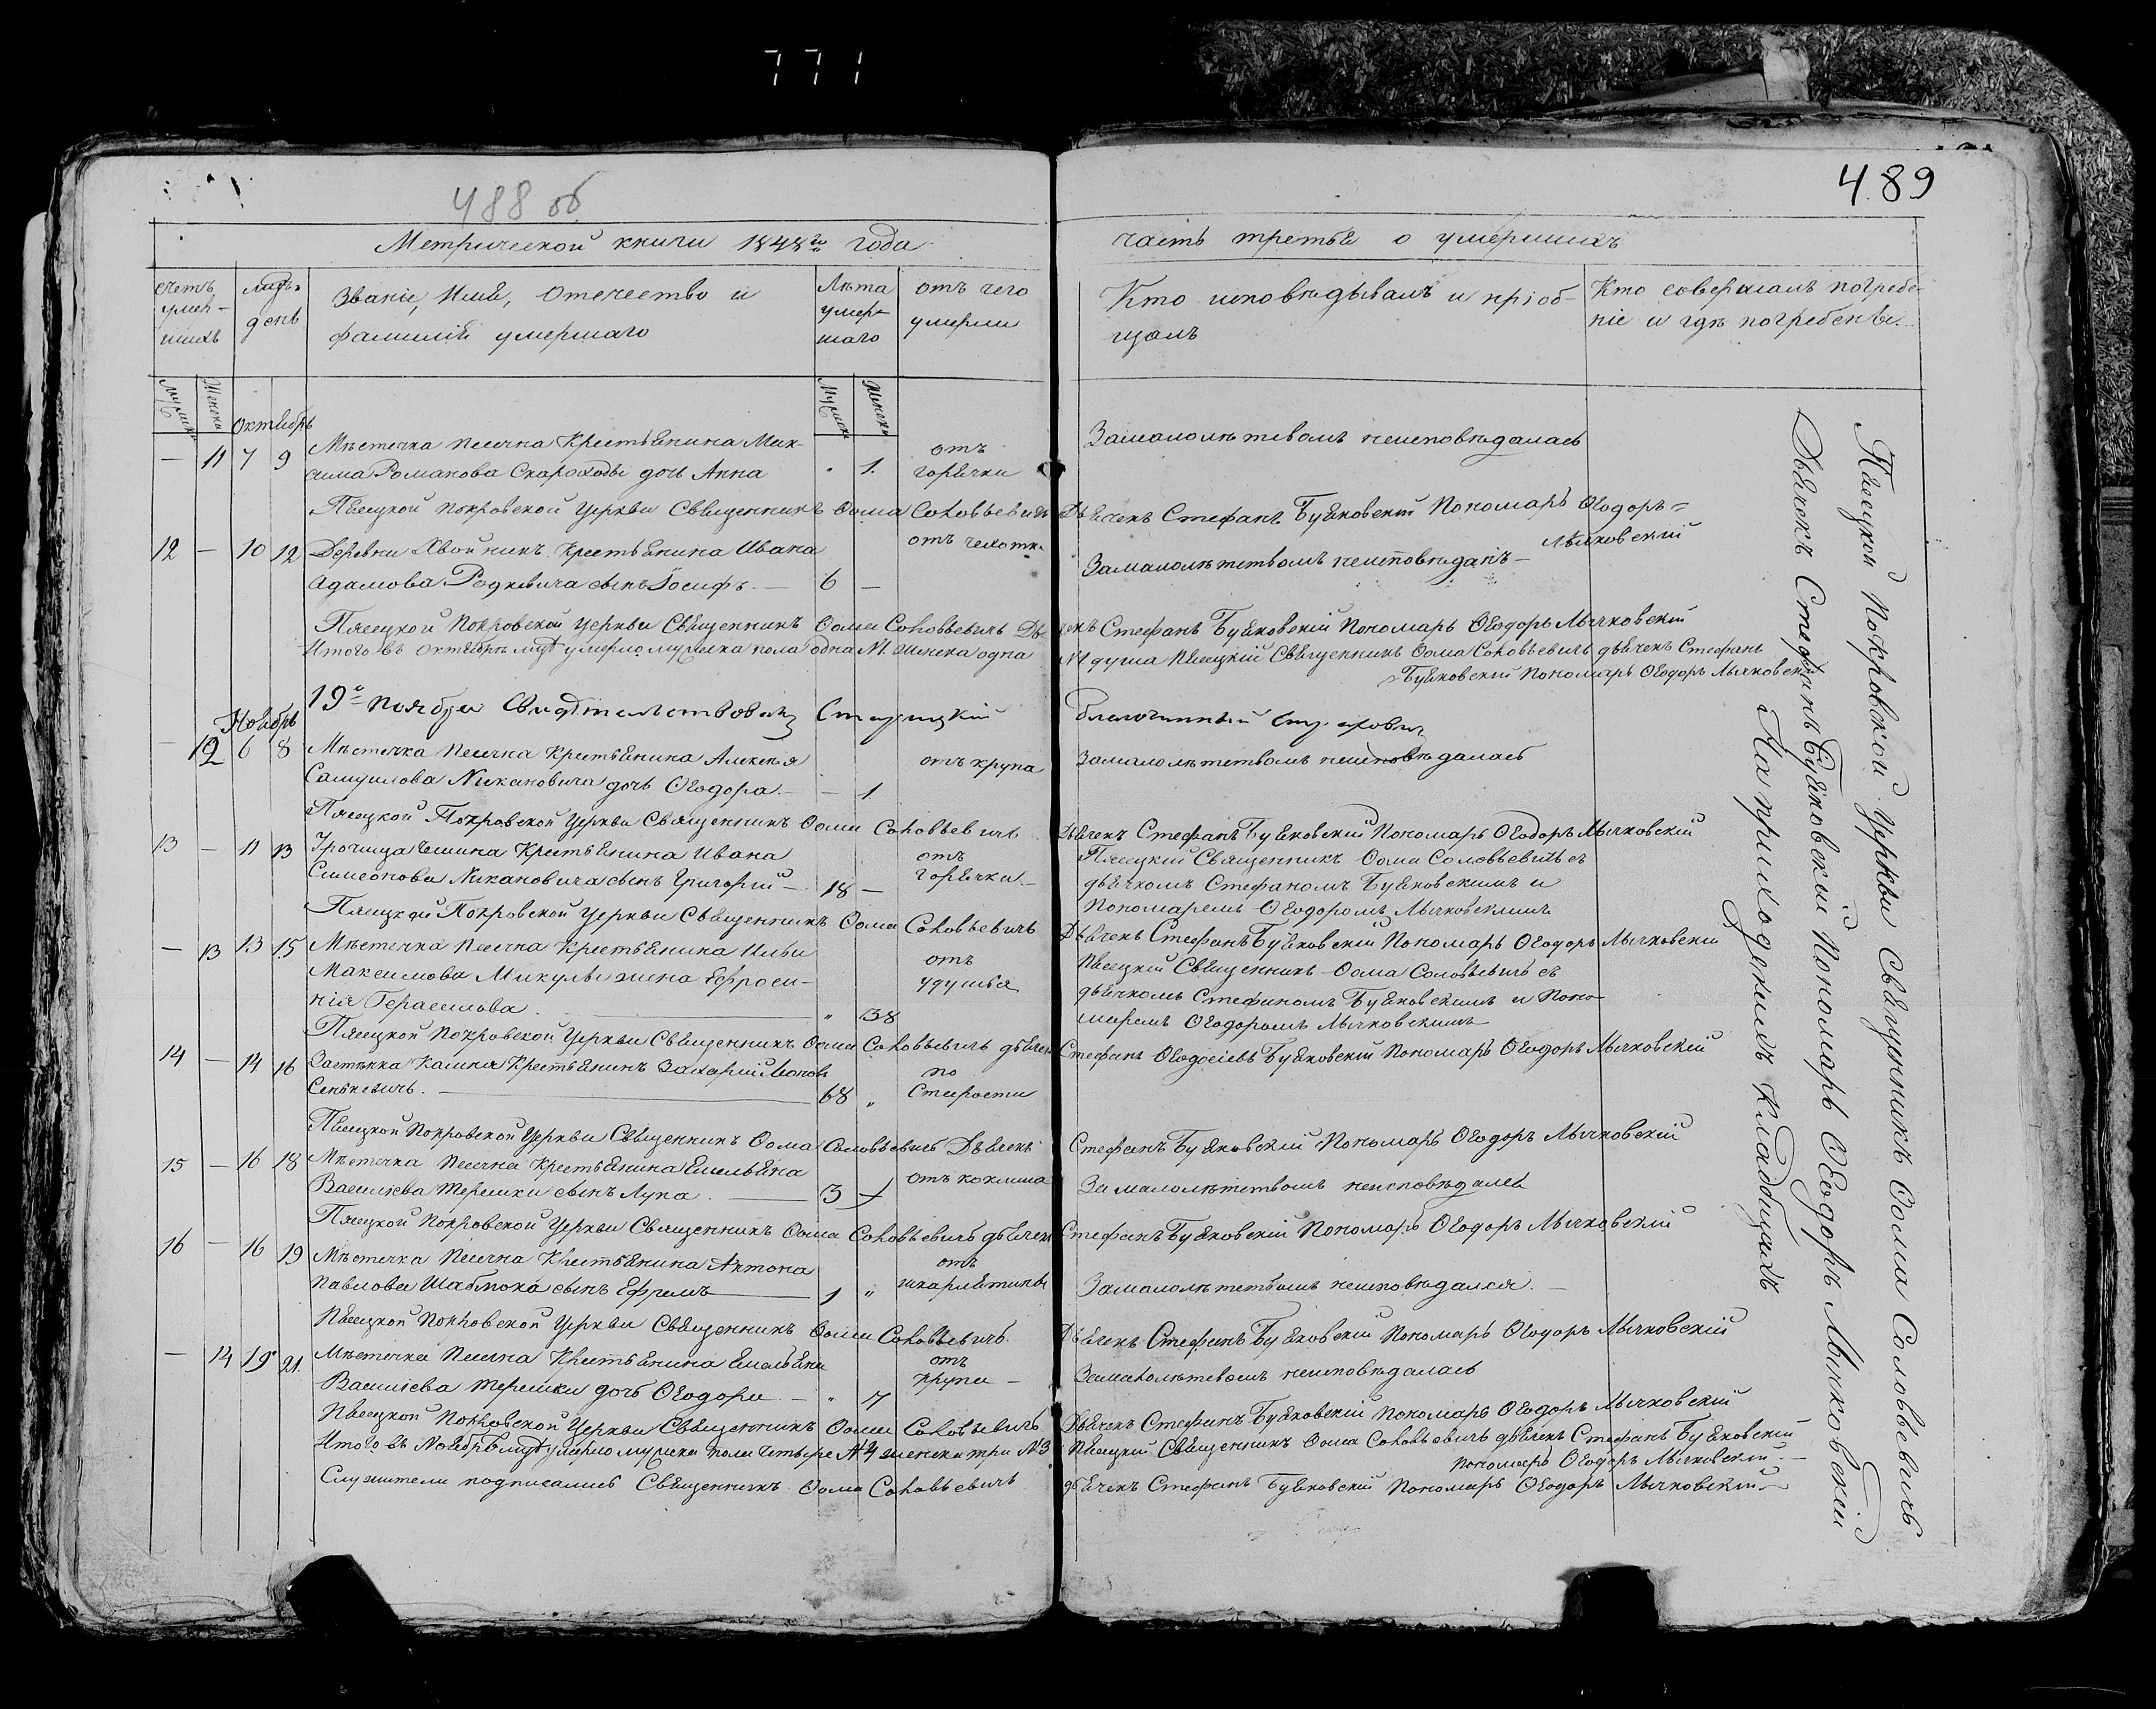 771
488 об
489
Метрической книги 1848го года
часть третья о умершихъ
счетъ умер-шихъ
мсцъ, день
Званіе, Имя, Отечество и
фамилія умершаго
Лѣта умер-шаго
отъ чего умерли
Кто исповѣдывалъ и пріоб-
щалъ
Кто совершалъ погребе-
ніе и гдѣ погребены.
Мужеска
Женска
Мужеска
Женска
Октябрь
— 11 7 9 Мѣстечка песечна Крестьянина Мак-
сима Романова Скароходы дочь Анна " 1. отъ горячки
Замалолѣтевомъ неисповѣдалась
Пясецкой покровской церкви Священникъ Ѳома Соловьевичъ Дьячекъ Стефанъ Буяковскій Пономарь Ѳеодоръ=
Лычковскій
12 — 10 12 Деревни Хвойникъ Крестьянина Ивана отъ чехотк.
Адамова Родкевича сынъ Іосифъ. — 6 —
Замалолѣтствомъ неисповѣданъ —
Пясецкой Покровской церкви Священникъ Ѳома Соловьевичъ Дьячекъ Стефанъ Буяковскій Пономарь Ѳеодоръ Лычковскій
Итого въ октябрѣ мцѣ умерло мужеска пола одна №1. женска одна №1 душа Пясецкій Священникъ Ѳома Соловьевичъ дьячекъ Стефанъ
Буяковскій Пономарь Ѳеодоръ Лычковскій
19го Ноября Свидѣтельствовалъ Старицкій благочинный
Ноябрь
— 12 6 8 Мѣстечка Песечна Крестьянина Алексѣя отъ крупа
Самуилова Никановича дочь Ѳеодора. — — 1.
Замалолѣтствомъ неисповѣдалась
Пясецкой Покровской Церкви Священникъ Ѳома Соловьевичъ Дьячекъ Стефанъ Буяковскій Пономарь Ѳеодоръ Лычковскій
13 — 11 13 Урочища Чешина Крестьянина Ивана отъ
Симеонова Никановича сынъ Григорій — 18 — горячки. —
Пясецкій Священникъ Ѳома Соловьевичь съ
дьячкомъ Стефаномъ Буяковскимъ и
Пономаремъ Ѳеодоромъ Лычковскимъ
Пясецкой Покровской Церкви Священникъ Ѳома Соловьевичъ Дьячекъ Стефанъ Буяковскій Пономарь Ѳеодоръ Лычковскій
— 13 13 15 Мѣстечка Песечна Крестьянина Ильи отъ
Максимова Микулы жена Ефроси- удушья
нія Герасимова. " 38
Пясецкій Священникъ Ѳома Соловьевичь съ
дьячкомъ Стефаномъ Буяковскимъ и Поно-
маремъ Ѳеодоромъ Лычковскимъ
Пясецкой Покровской Церкви Священникъ Ѳома Соловьевичъ дьячекъ Стефанъ Ѳеодосіевъ Буяковскій Пономарь Ѳеодоръ Лычковскій
14 — 14 16 Застѣнка Камня Крестьянинъ Захарій по
Сенькевичъ. 68 " Старости
Пясецкой Покровской Церкви Священникъ Ѳома Соловьевичъ Дьячекъ Стефанъ Буяковскій Пономарь Ѳеодоръ Лычковскій
15 — 16 18 Мѣстечка Песечна Крестьянина Емельяна
Василіева Терешки сынъ Лука. 3 отъ коклюша
За малолѣтствомъ неисповѣдался
Пясецкой Покровской Церкви Священникъ Ѳома Соловьевичъ дьячекъ Стефанъ Буяковскій Пономарь Ѳеодоръ Лычковскій
16 — 16 19 Мѣстечка Песечна Крестьянина Антона отъ
Павлова Шаблюка сынъ Ефремъ 1 " шкарлятины
Замалолѣтствомъ неисповѣдался. —
Пясецкой Покровской Церкви Священникъ Ѳома Соловьевичъ. Дьячекъ Стефанъ Буяковскій Пономарь Ѳеодоръ Лычковскій
— 14 19 21. Мѣстечка Песечна Крестьянина Емельяна отъ
Василіева Терешки дочь Ѳеодора — " 7 крупа —
Замалолѣтевомъ неисповѣдалась
Пясецкой Покровской Церкви Священникъ Ѳома Соловьевичъ Дьячекъ Стефанъ Буяковскій Пономарь Ѳеодоръ Лычковскій
Итого въ Ноябрѣ мцѣ умерло мужска пола четыре №4 женска три №3 Пясецкій Священникъ Ѳома Соловьевичъ дьячекъ Стефанъ Буяковскій
Пономарь Ѳеодоръ Лычковскій. —
Служители подписались Священникъ Ѳома Соловьевичъ дьячекъ Стефанъ Буяковскій Пономарь Ѳеодоръ Лычковскій
Пясецкой Покровской Церкви Священникъ Ѳома Соловьевичъ
Дьячокъ Стефанъ Буяковскій Пономарь Ѳеодоръ Лычковскій
На приходскихъ кладбищахъ